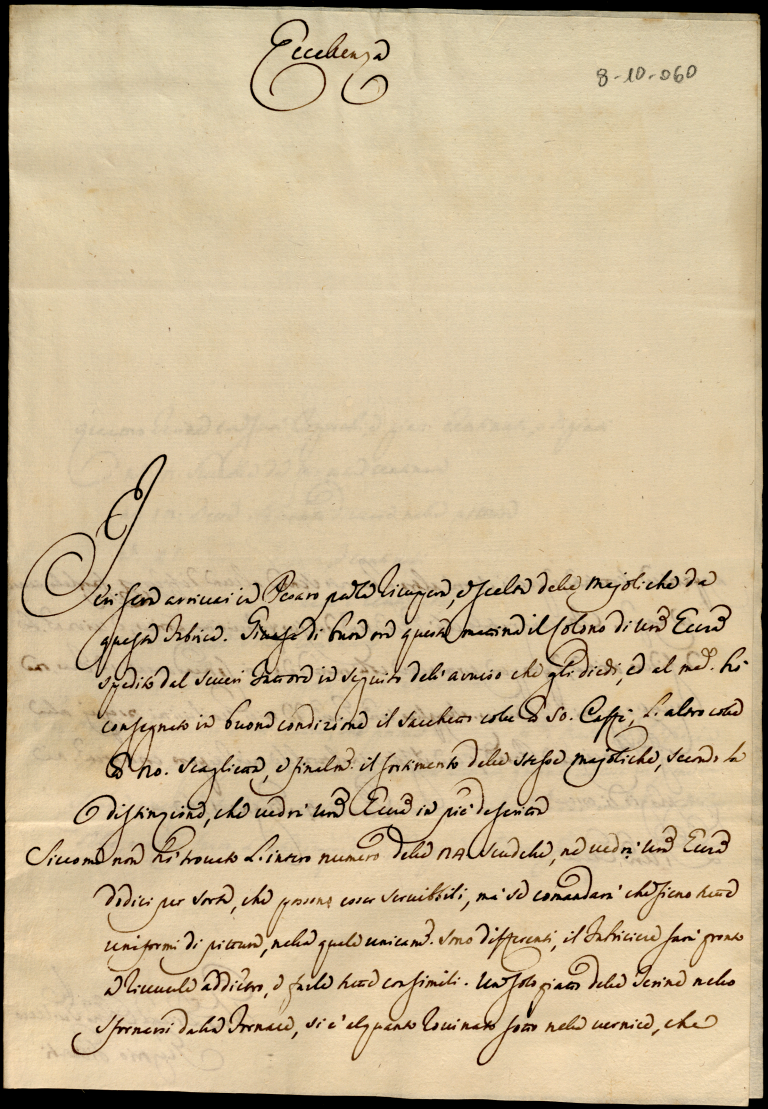 Eccellenza
8-10-060
Ieri sera arrivai in Pesaro per la ricupera, e scelta delle majoliche da
questa Fabrica. Giunse di buon ora questa mattina il solono di Vr̃a Eccza
spedito dal Severi Fattore in seguito dell'avviso che gli diedi, ed al med. hò
consegnato in buona condizione il sacchetto colle 50. Caffè, l'altro colle
20. Scagliola, e finalm. il sortimento delle stesse majoliche, secondo la
distinzione, che vedrà Vr̃a Eccza in piè descritta
Siccome non hò trovato l'intero numero delle 24 scudelle, ne vedrà Vr̃a Eccza
dodici per sorte, che possono esser servibili, ma se comandarà che sieno tutte
uniformi di pittura, nella quale unicam. sono differenti, il Fabriciere sarà pronto
a riceverle addietro, e farle tutte consimili. Un solo piatto delle Terine nello
sfornarsi dalla Fornace, si è alquanto rovinato sotto nella vernice, che